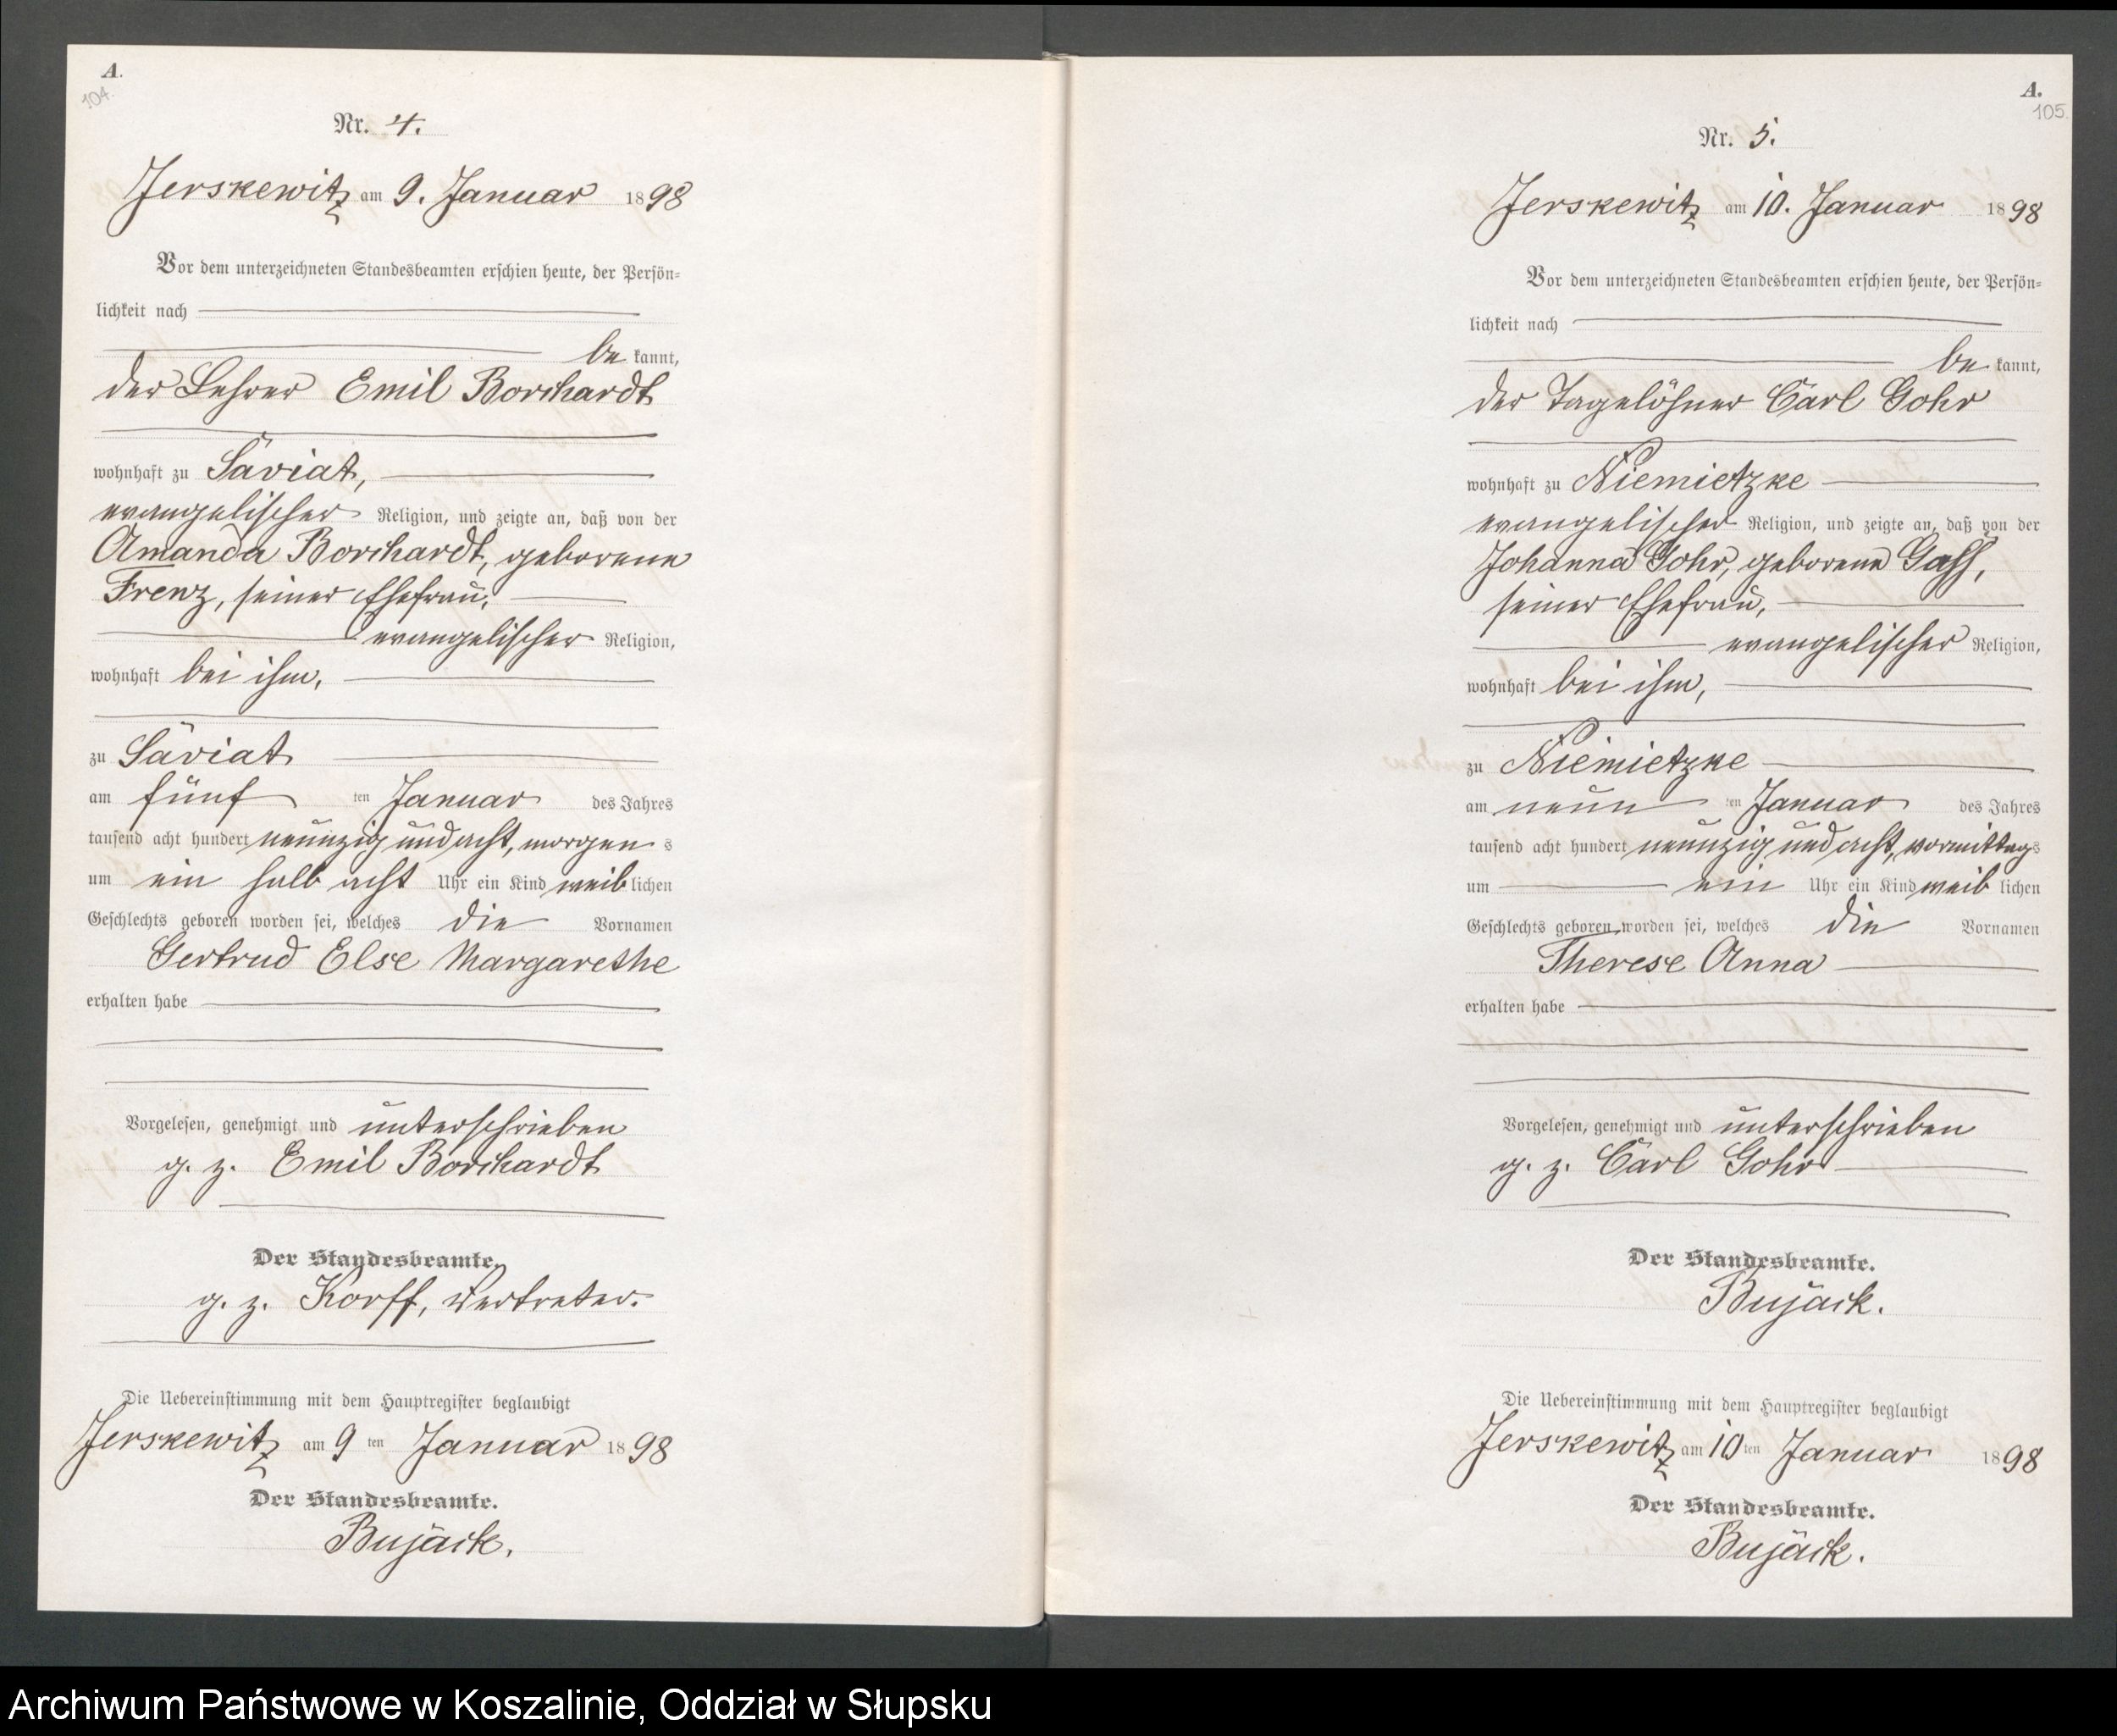 A.
104.
Nr. 4.
Jerskewitz am 9. Januar 1898
Vor dem unterzeichneten Standesbeamten erschien heute, der Persön-
lichkeit nach
be kannt,
der Lehrer Emil Borchardt
wohnhaft zu Saviat,
evangelischer Religion, und zeigte an, daß von der
Amanda Borchardt, geborene
Frenz, seiner Ehefrau,
evangelischer Religion,
wohnhaft bei ihm,
zu Saviat
am fünf ten Januar des Jahres
tausend acht hundert neunzig und acht, morgen s
um ein halb acht Uhr ein Kind weib lichen
Geschlechts geboren worden sei, welches die Vornamen
Gertrud Else Margarethe
erhalten habe
Vorgelesen, genehmigt und unterschrieben
g. z. Emil Borchardt
Der Standesbeamte.
g. z. Korff, Vertreter.
Die Uebereinstimmung mit dem Hauptregister beglaubigt
Jerskewitz am 9 ten Januar 1898
Der Standesbeamte.
Bujack.
A.
105.
Nr. 5.
Jerskewitz am 10. Januar 1898
Vor dem unterzeichneten Standesbeamten erschien heute, der Persön-
lichkeit nach
be kannt,
der Tagelöhner Carl Gohr
wohnhaft zu Niemietzke
evangelischer Religion, und zeigte an, daß von der
Johanna Gohr, geborene Gass,
seiner Ehefrau,
evangelischer Religion,
wohnhaft bei ihm,
zu Niemietzke
am neun ten Januar des Jahres
tausend acht hundert neunzig und acht, vormittag s
um ein Uhr ein Kind weib lichen
Geschlechts geboren worden sei, welches die Vornamen
Therese Anna
erhalten habe
Vorgelesen, genehmigt und unterschrieben
g. z. Carl Gohr
Der Standesbeamte.
Bujack.
Die Uebereinstimmung mit dem Hauptregister beglaubigt
Jerskewitz am 10 ten Januar 1898
Der Standesbeamte.
Bujack.
Archiwum Państwowe w Koszalinie, Oddział w Słupsku